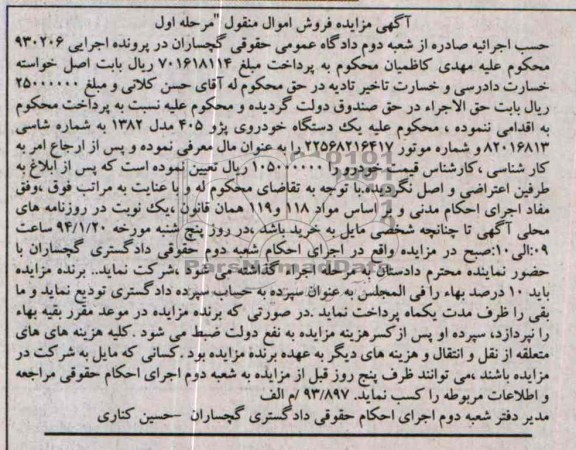 آگهی مزایده فروش اموال منقول "مرحله اول
حسب اجرائیه صادره از شعبه دوم دادگاه عمومی حقوقی گچساران در پرونده اجرایی ۹۳۰۲۰۶
محکوم علیه مهدی کاظمیان محکوم به پرداخت مبلغ ۷۰۱۶۱۸۱۱۴ ریال بابت اصل خواسته
خسارت دادرسی و خسارت تاخیر تادیه در حق محکوم له آقای حسن کلانی و مبلغ ۲۵۰۰۰۰۰۰
ریال بابت حق الاجراء در حق صندوق دولت گردیده و محکوم علیه نسبت به پرداخت محکوم
به اقدامی ننموده ، محکوم علیه یک دستگاه خودروی پژو ۴۰۵ مدل ۱۳۸۲ به شماره شاسی
۸۲۰۱۶۸۱۳ و شماره موتور ۲۲۵۶۸۲۱۶۴۱۷ را به عنوان مال معرفی نموده و پس از ارجاع امر به
کار شناسی ،کارشناس قیمت خودرو را ۱۰۵۰۰۰۰۰۰ ریال تعیین نموده است که پس از ابلاغ به
طرفین اعتراضی و اصل نگردیده.با توجه به تقاضای محکوم له و با عنایت به مراتب فوق ،وفق
مفاد اجرای احکام مدنی و بر اساس مواد ۱۱۸ و۱۱۹ همان قانون ،یک نوبت در روزنامه های
محلی آگهی تا چنانچه شخصی مایل به خرید باشد ،در روز پنج شنبه مورخه ۹۴/۱/۲۰ ساعت
۰۹:الی۱۰:صبح در مزایده واقع در اجرای احکام شعبه دوم حقوقی دادگستری گچساران با
حضور نماینده محترم دادستان به مرحله اجرا گذاشته می شود ،شرکت نماید.. برنده مزایده
باید ۱۰ درصد بهاء را فی المجلس به عنوان سپرده به حساب سپرده دادگستری تودیع نماید و ما
بقی را ظرف مدت یکماه پرداخت نماید .در صورتی که برنده مزایده در موعد مقرر بقیه بهاء
را نپردازد، سپرده او پس از کسرهزینه مزایده به نفع دولت ضبط می شود .کلیه هزینه های های
متعلقه از نقل و انتقال و هزینه های دیگر به عهده برنده مزایده بود .کسانی که مایل به شرکت در
مزایده باشند ،می توانند ظرف پنج روز قبل از مزایده به شعبه دوم اجرای احکام حقوقی مراجعه
و اطلاعات مربوطه را کسب نماید. ۹۳/۸۹۷ /م الف
مدیر دفتر شعبه دوم اجرای احکام حقوقی دادگستری گچساران –حسین کناری